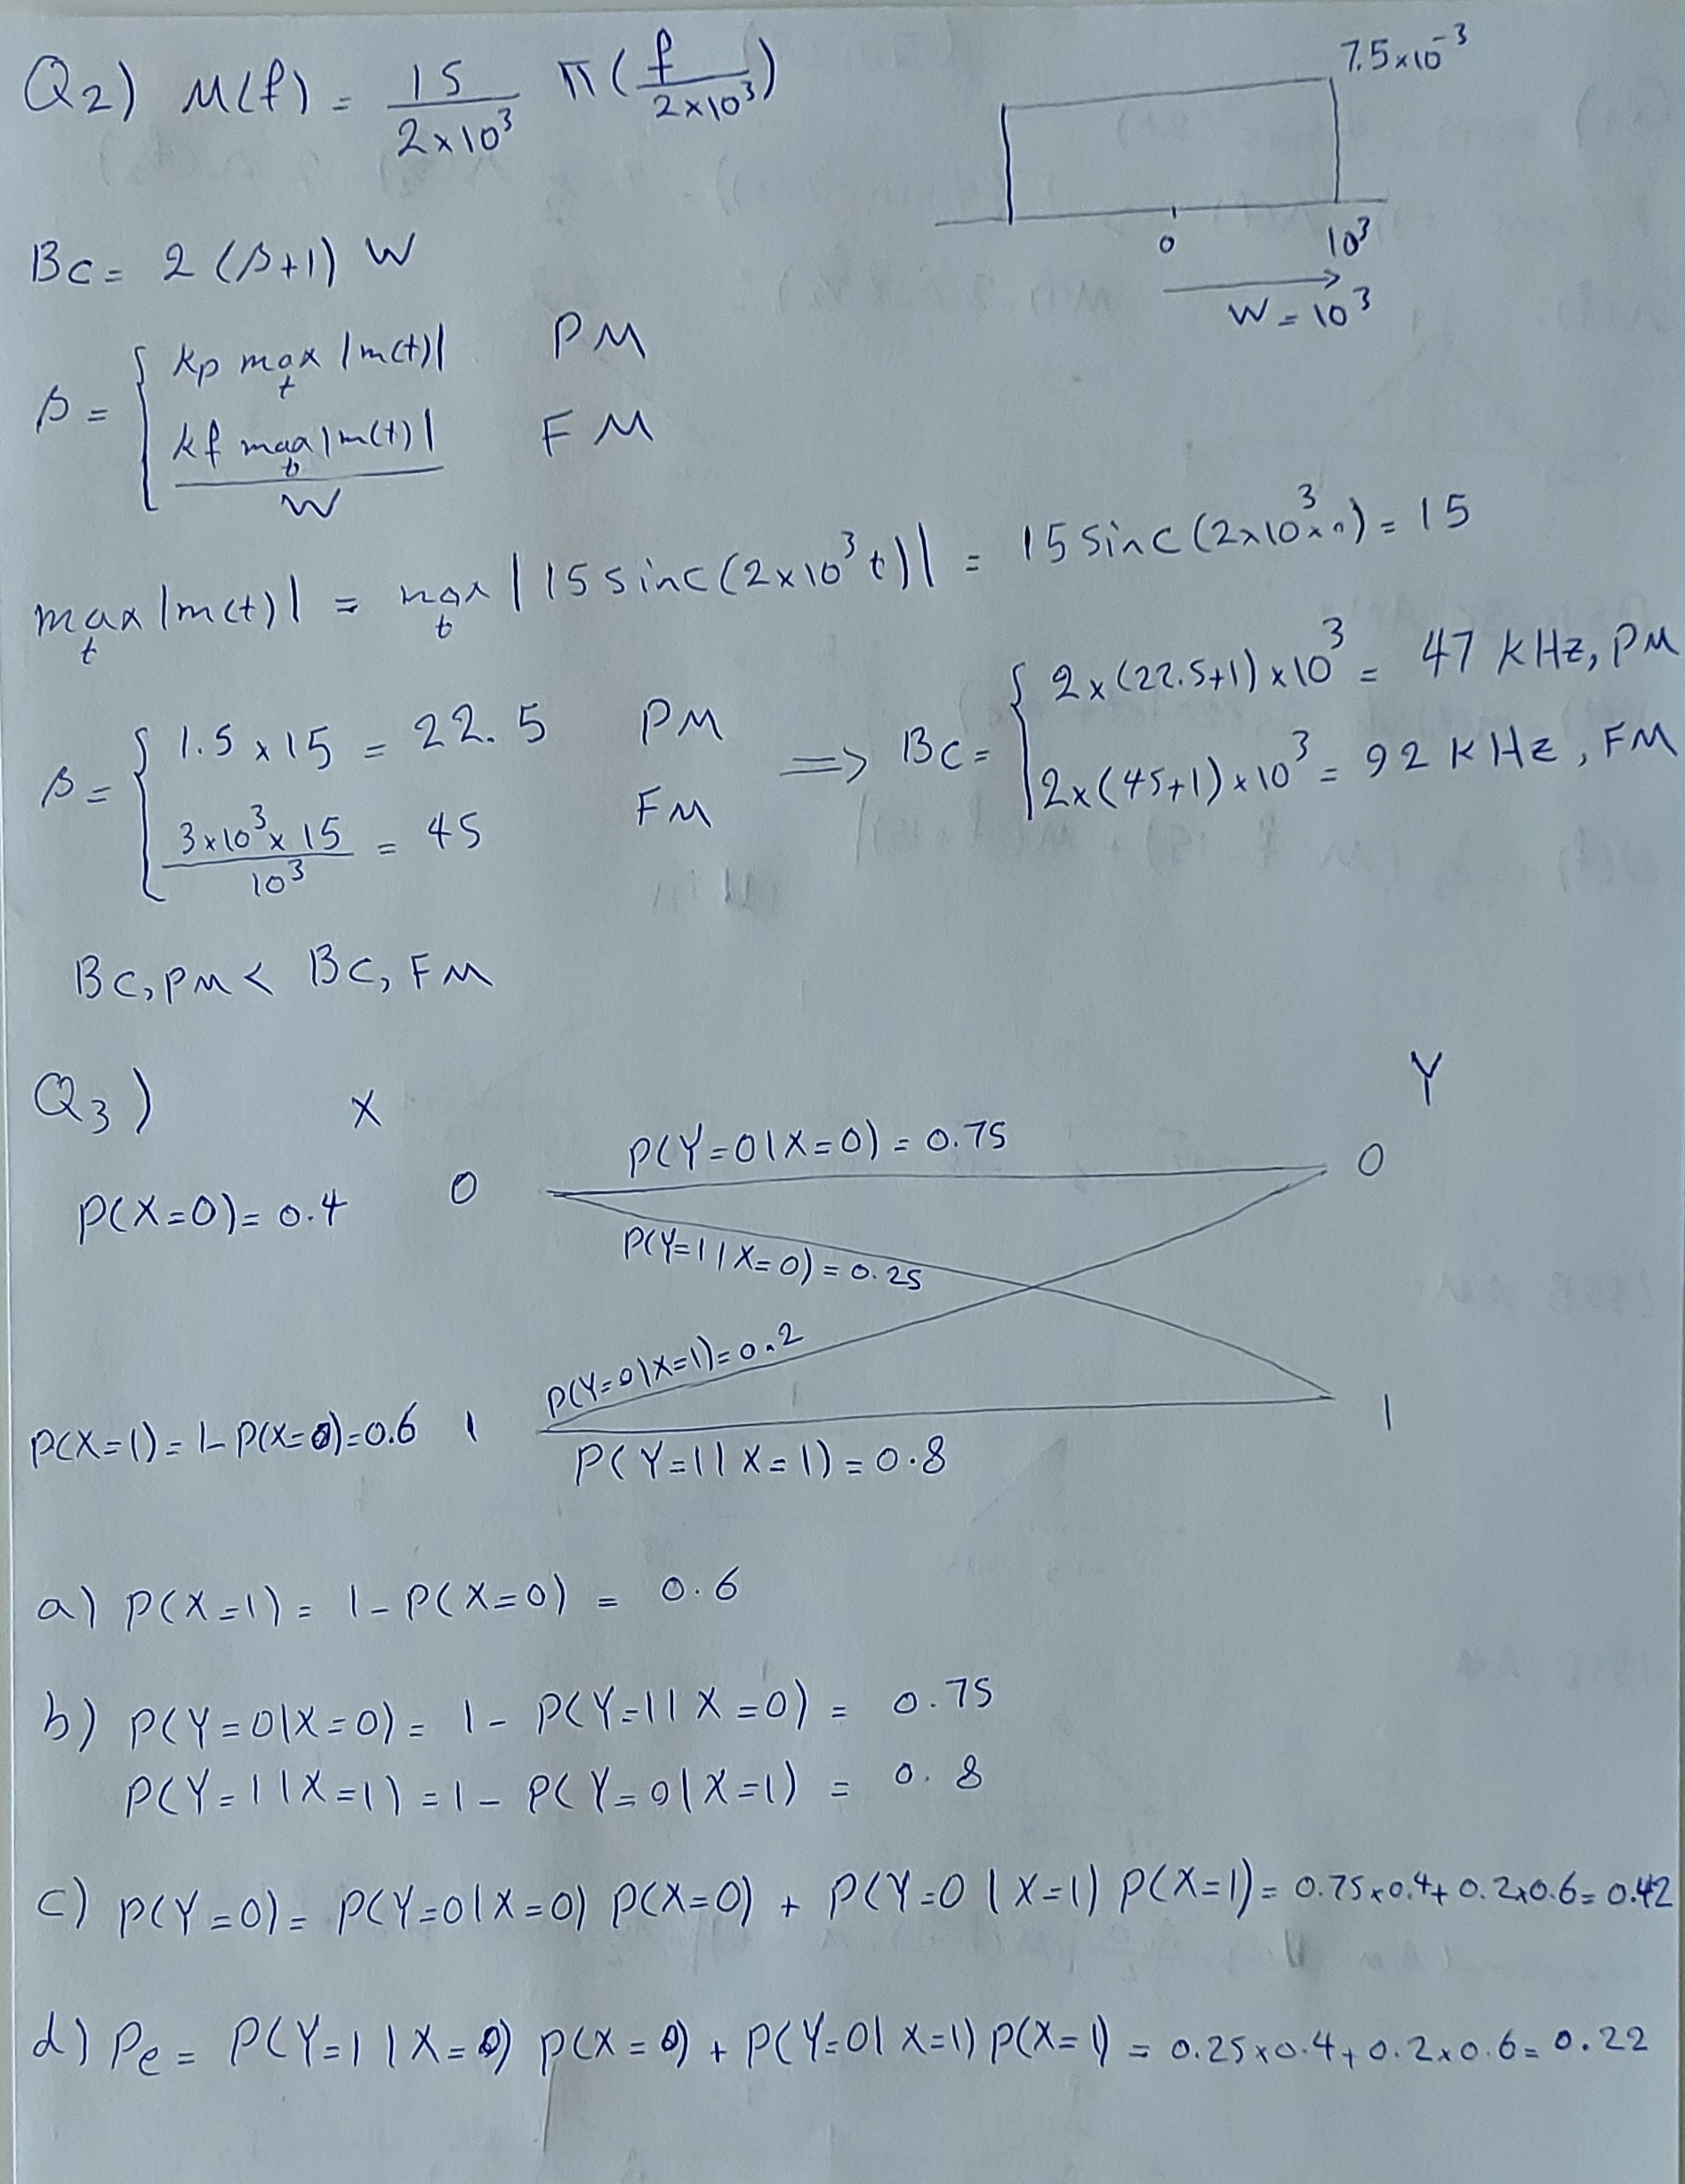 Q2) M(f) = 15 / 2×10³ Π(f / 2×10³)
7.5×10⁻³
0 10³
W = 10³
Bc = 2 (β+1) W
β = { kp max |m(t)| PM
t
kf max |m(t)| / W FM
t
max |m(t)| = max | 15 sinc(2×10³ t)| = 15 sinc(2×10³×0) = 15
t t
β = { 1.5 × 15 = 22.5 PM
3×10³ × 15 / 10³ = 45 FM
=> Bc = { 2×(22.5+1)×10³ = 47 kHz, PM
2×(45+1)×10³ = 92 kHz, FM
Bc,PM < Bc,FM
Q3) X Y
P(X=0)= 0.4 0 P(Y=0|X=0) = 0.75 0
P(Y=1|X=0) = 0.25
P(Y=0|X=1)= 0.2
P(X=1)= 1-P(X=0)=0.6 1 P(Y=1|X=1) = 0.8 1
a) P(X=1) = 1-P(X=0) = 0.6
b) P(Y=0|X=0) = 1- P(Y=1|X=0) = 0.75
P(Y=1|X=1) = 1- P(Y=0|X=1) = 0.8
c) P(Y=0) = P(Y=0|X=0) P(X=0) + P(Y=0|X=1) P(X=1) = 0.75×0.4+0.2×0.6= 0.42
d) Pe = P(Y=1|X=0) P(X=0) + P(Y=0|X=1) P(X=1) = 0.25×0.4+0.2×0.6= 0.22